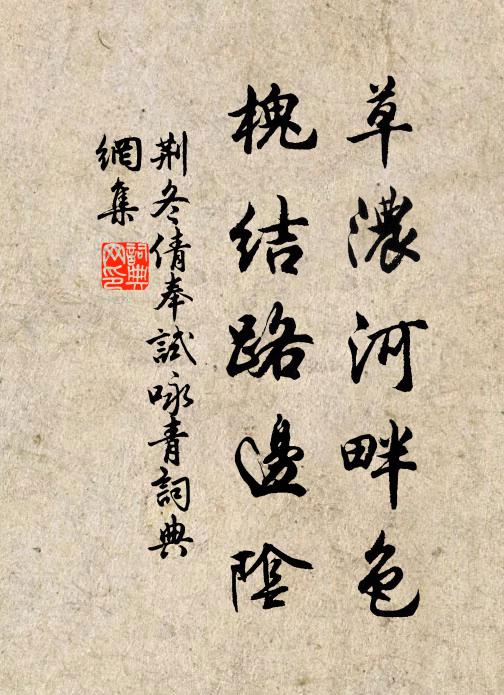 草濃河畔色
槐結路邊陰
荆冬倩奉試咏青詞典
網集
詞典
网印